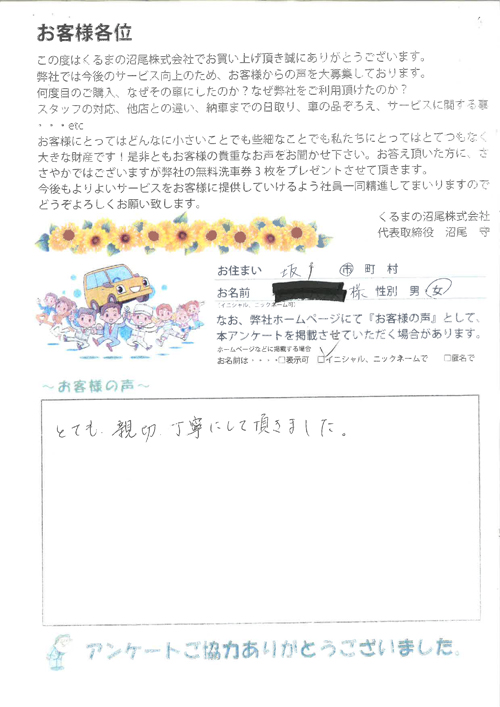 お客様各位
この度はくるまの沼尾株式会社でお買い上げ頂き誠にありがとうございます。
弊社では今後のサービス向上のため、お客様からの声を大募集しております。
何度目のご購入、なぜその車にしたのか？なぜ弊社をご利用頂けたのか？
スタッフの対応、他店との違い、納車までの日取り、車の品ぞろえ、サービスに関する事
・・・etc
お客様にとってはどんなに小さいことでも些細なことでも私たちにとってはとてつもなく
大きな財産です！是非ともお客様の貴重なお声をお聞かせ下さい。お答え頂いた方に、さ
さやかではございますが弊社の無料洗車券３枚をプレゼントさせて頂きます。
今後もよりよいサービスをお客様に提供していけるよう社員一同精進してまいりますので
どうぞよろしくお願い致します。
くるまの沼尾株式会社
代表取締役 沼尾 守
お住まい 坂戸 市 町 村
お名前 様 性別 男 女
（イニシャル、ニックネーム可）
なお、弊社ホームページにて『お客様の声』として、
本アンケートを掲載させていただく場合があります。
ホームページなどに掲載する場合
お名前は・・・・□表示可 □イニシャル、ニックネームで □匿名で
～お客様の声～
とても、親切、丁寧にして頂きました。
アンケートご協力ありがとうございました。